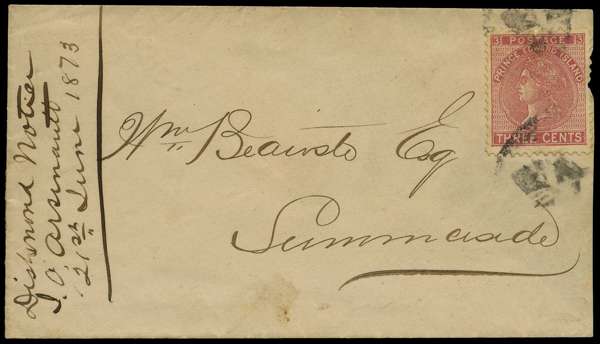 Dishonord Notice
J. O. Arsenault
21st June 1873
Wm. Beairsto Esq
Summerside
3 POSTAGE 3
PRINCE EDWARD ISLAND
THREE CENTS